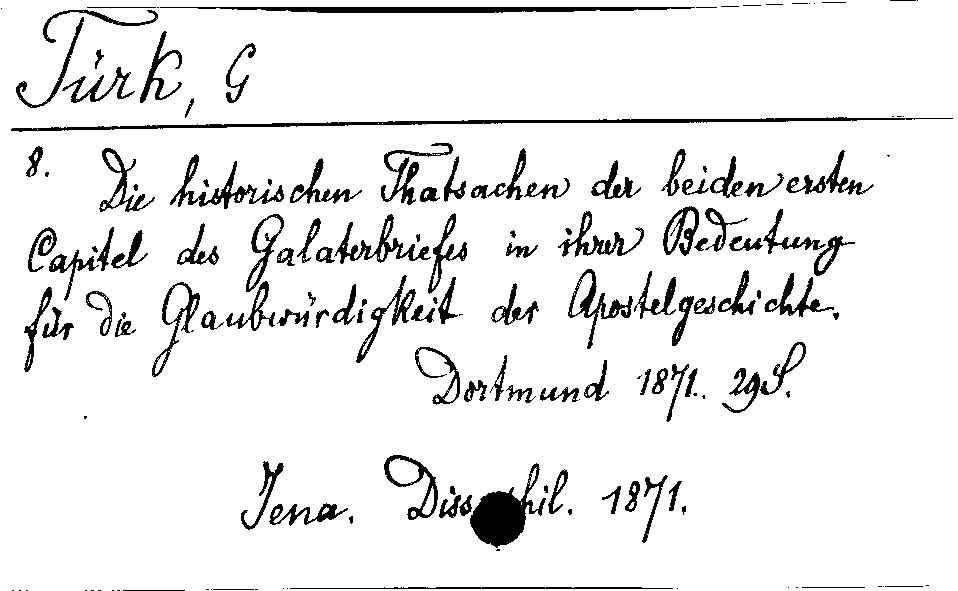 Türk, G
8. Die historischen Thatsachen der beiden ersten
Capitel des Galaterbriefes in ihrer Bedeutung
für die Glaubwürdigkeit der Apostelgeschichte.
Dortmund 1871. 29 S.
Jena. Diss. phil. 1871.